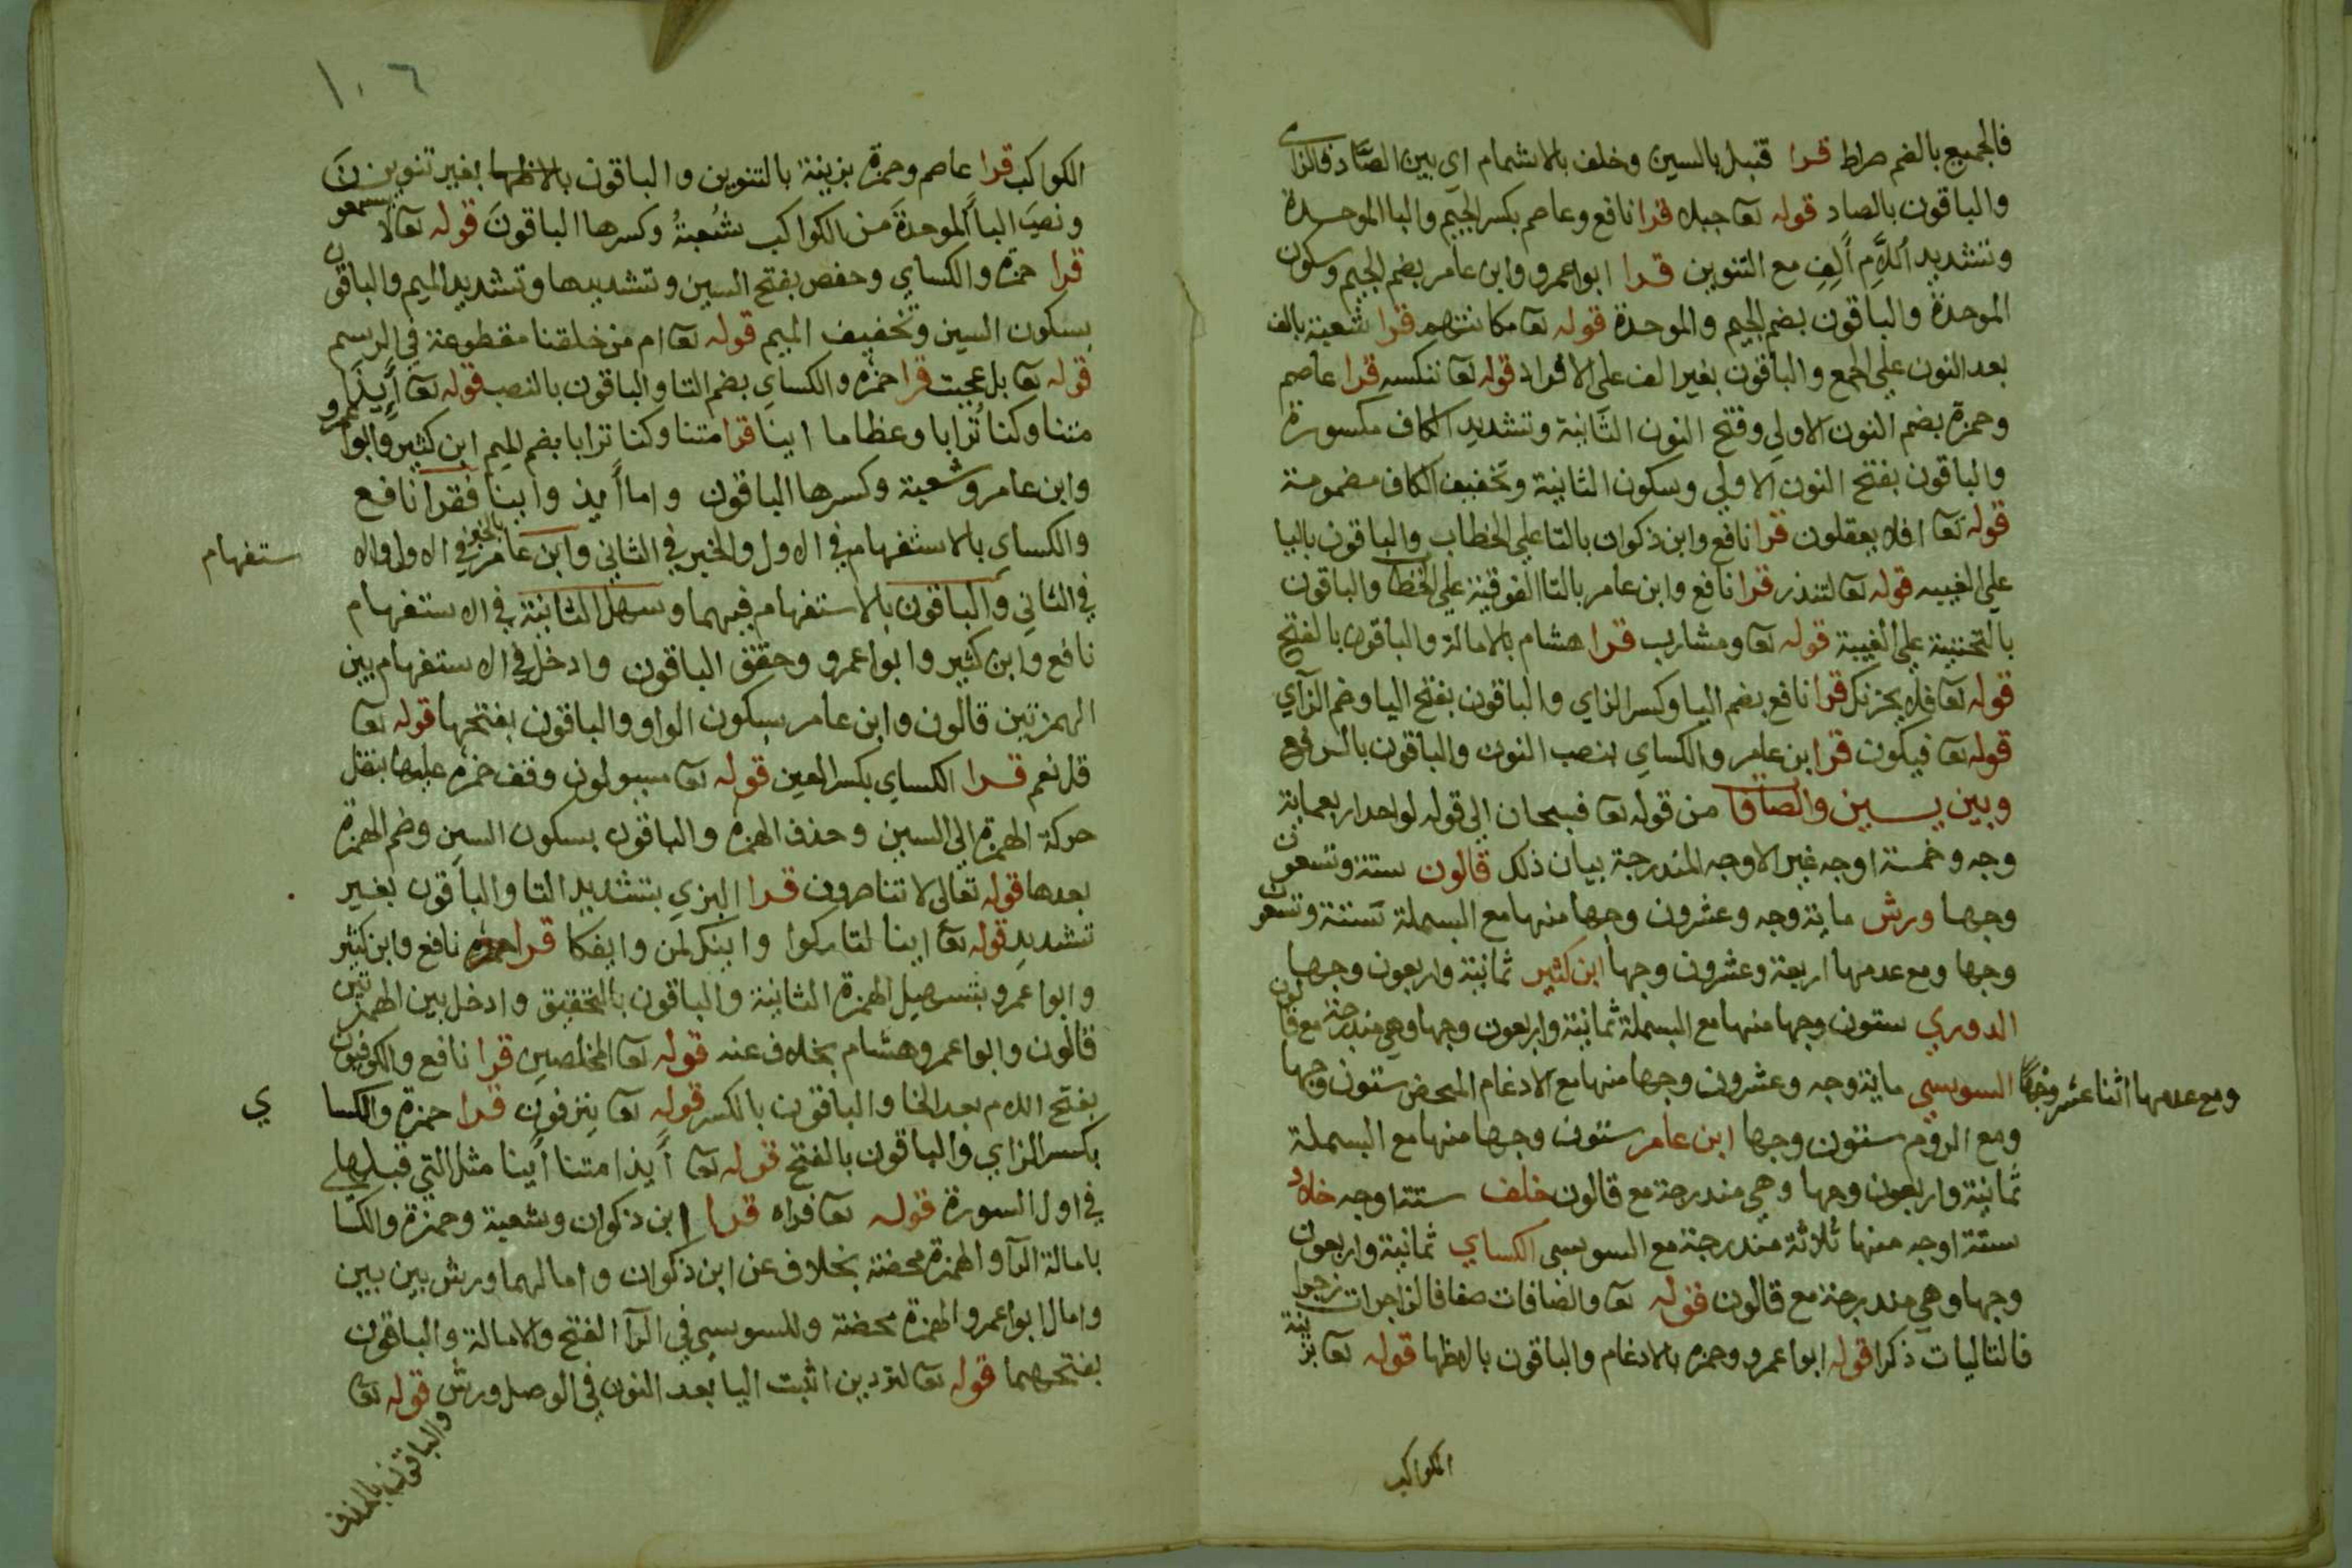 فالجميع بالضم صراط قرا قنبل بالسين وخلف بالاشمام اي بين الصاد والزاي
والباقون بالصاد قوله تعا جبلا قرا نافع وعاصم بكسر الجيم والبا الموحدة
وتشديد اللام ألف مع التنوين قرا ابوا عمرو وابن عامر بضم الجيم وسكون
الموحدة والباقون بضم الجيم والموحدة قوله تعا مكانتهم قرا شعبة بالف
بعد النون علي الجمع والباقون بغير الف علي الافراد قوله تعا ننكسه قرا عاصم
وحمزة بضم النون الاولي وفتح النون الثانية وتشديد الكاف مكسورة
والباقون بفتح النون الاولي وسكون الثانية وتخفيف الكاف مضمومة
قوله تعا افلا يعقلون قرا نافع وابن ذكوان بالتا علي الخطاب والباقون باليا
علي الغيبه قوله تعا لتنذر قرا نافع وابن عامر بالتا الفوقية علي الخطا والباقون
بالتحتية علي الغيبة قوله تعا ومشارب قرا هشام بالامالة والباقون بالفتح
قوله تعا فلا يحزنك قرا نافع بضم اليا وكسر الزاي والباقون بفتح اليا وضم الزآي
قوله تعا فيكون قرا ابن عامر والكساي بنصب النون والباقون بالرفع
وبين يسين والصافا من قوله تعا فسبحان الي قوله لواحد اربعماية
وجه وخمسة اوجه غير الاوجه المندرجة بيان ذلك قالون ستة وتسعون
وجها ورش ماية وجه وعشرون وجها منها مع البسملة ستة وتسعون
وجها ومع عدمها اربعة وعشرون وجها ابن كثير ثمانية واربعون وجها
الدوري ستون وجها منها مع البسملة ثمانية واربعون وجها وهي مندرجة مع قالون
ومع عدمها اثنا عشر وجها السوسي ماية وجه وعشرون وجها منها مع الادغام المحض ستون وجها
ومع الروم ستون وجها ابن عامر ستون وجها منها مع البسملة
ثمانية واربعون وجها وهي مندرجة مع قالون خلف ستة اوجه خلاد
ستة اوجه منها ثلاثة مندرجة مع السوسي الكساي ثمانية واربعون
وجها وهي مندرجة مع قالون قوله تعا والصافات صفا فالزاجرات زجرا
فالتاليات ذكرا قوله ابوا عمرو وحمزه بالادغام والباقون بالاظها قوله تعا بزينة
الكواكب
١٠٦
الكواكب قرا عاصم وحمزة بزينة بالتنوين والباقون بالاظها بغير تنوين
ونصب البا الموحدة من الكواكب شعبة وكسرها الباقون قوله تعا لا يسمعون
قرا حمزة والكساي وحفص بفتح السين وتشديدها وتشديد الميم والباقون
بسكون السين وتخفيف الميم قوله تعا ام من خلقنا مقطوعة في الرسم
قوله تعا بل عجبت قرا حمزه والكساي بضم التا والباقون بالنصب قوله تعا أيذا
متنا وكنا ترابا وعظاما اينا قرا متنا وكنا ترابا بضم الميم ابن كثير وابوا عمرو
وابن عامر وشعبة وكسرها الباقون واما أيذ واينا فقرا نافع
والكساي بالاستفهام في الاول والخبر في الثاني وابن عامر بالخبر في الاول والا
ستفهام
في الثاني والباقون بالاستفهام فيهما وسهل الثانية في الاستفهام
نافع وابن كثير وابوا عمرو وحقق الباقون وادخل في الاستفهام بين
الهمزتين قالون وابن عامر بسكون الواو والباقون بفتحها قوله تعا
قل نعم قرا الكساي بكسر العين قوله تعا مسيولون وقف حمزه عليها بنقل
حركة الهمزة الي السين وحذف الهمزه والباقون بسكون السين وضم الهمزة
بعدها قوله تعالى لا تناصرون قرا البزي بتشديد التا والباقون بغير
تشديد قوله تعا اينا لتاركوا واينك لمن وايفكا قرا نافع وابن كثير
وابوا عمرو بتسهيل الهمزة الثانية والباقون بالتحقيق وادخل بين الهمزتين
قالون وابوا عمرو وهشام بخلاف عنه قوله تعا المخلصين قرا نافع والكوفيون
بفتح اللام بعد الخا والباقون بالكسر قوله تعا ينزفون قرا حمزة والكسا
ي
بكسر الزاي والباقون بالفتح قوله تعا أيذا متنا أينا مثل التي قبلها
في اول السورة قوله تعا فراه قرا ابن ذكوان وشعبة وحمزة والكسا
بامالة الرآ والهمزة محضة بخلاف عن ابن ذكوان وامالهما ورش بين بين
وامال ابوا عمرو الهمزة محضة وللسوسي في الرآ الفتح والامالة والباقون
بفتحهما قوله تعا لتردين اثبت اليا بعد النون في الوصل ورش قوله تعا
والباقون بالحذف